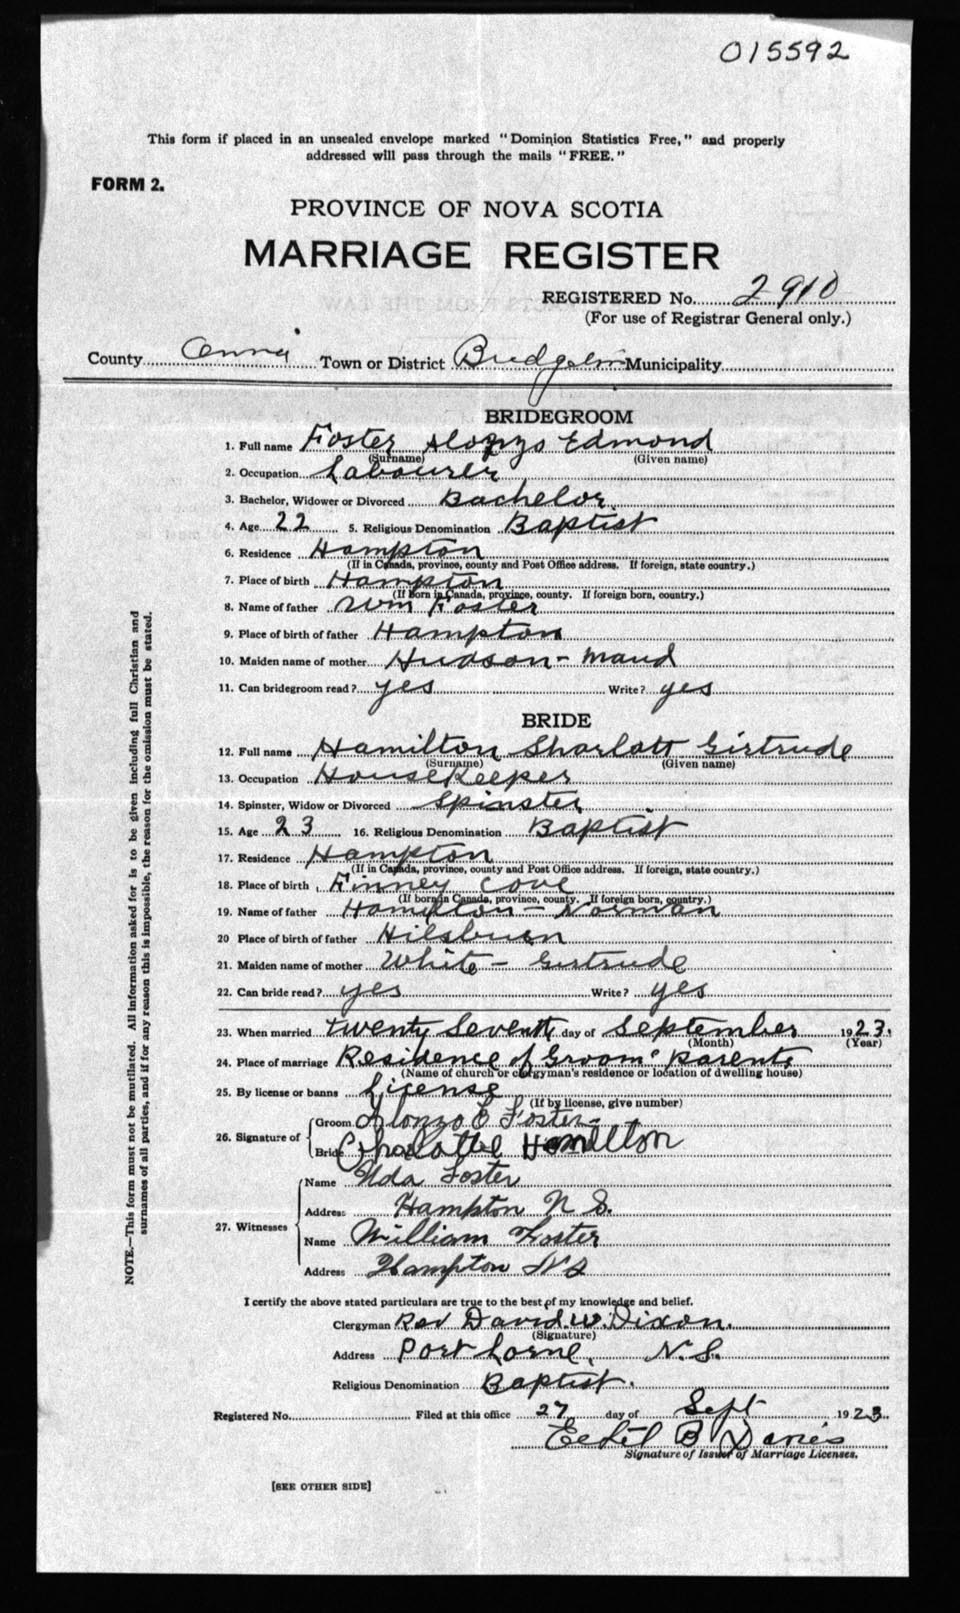 015592
This form if placed in an unsealed envelope marked "Dominion Statistics Free," and properly
addressed will pass through the mails "FREE."
FORM 2.
PROVINCE OF NOVA SCOTIA
MARRIAGE REGISTER
REGISTERED No. 2910
(For use of Registrar General only.)
County Anna Town or District Municipality
BRIDEGROOM
1. Full name Foster Alonzo Edmond
(Surname) (Given name)
2. Occupation Labourer
3. Bachelor, Widower or Divorced Bachelor
4. Age 22 5. Religious Denomination Baptist
6. Residence Hampton
(If in Canada, province, county and Post Office address. If foreign, state country.)
7. Place of birth Hampton
(If Born in Canada, province, county. If foreign born, country.)
8. Name of father Wm Foster
9. Place of birth of father Hampton
10. Maiden name of mother Hudson - Maud
11. Can bridegroom read? yes Write? yes
BRIDE
12. Full name Hamilton Sharlott Girtrude
(Surname) (Given name)
13. Occupation HouseKeeper
14. Spinster, Widow or Divorced Spinster
15. Age 23 16. Religious Denomination Baptist
17. Residence Hampton
(If in Canada, province, county and Post Office address. If foreign, state country.)
18. Place of birth Finney Cove
(If born in Canada, province, county. If foreign born, country.)
19. Name of father Hamilton - Norman
20 Place of birth of father Hilsburn
21. Maiden name of mother White - Girtrude
22. Can bride read? yes Write? yes
23. When married twenty Seventh day of September 1923.
(Month) (Year)
24. Place of marriage Residence of Groom' parents
(Name of church or clergyman's residence or location of dwelling house)
25. By license or banns License
(If by license, give number)
26. Signature of Groom Alonzo E Foster
Bride Charlotte Hamilton
27. Witnesses
Name Foster
Address Hampton N S.
Name William Foster
Address Hampton N S
I certify the above stated particulars are true to the best of my knowledge and belief.
Clergyman Rev David. W. Dixon.
(Signature)
Address Port Lorne, N.S.
Religious Denomination Baptist.
Registered No. Filed at this office 27 day of Sept 1923
B
Signature of Issuer of Marriage Licenses.
[SEE OTHER SIDE]
NOTE.—This form must not be mutilated. All information asked for is to be given including full Christian and
surnames of all parties, and if for any reason this is impossible, the reason for the omission must be stated.